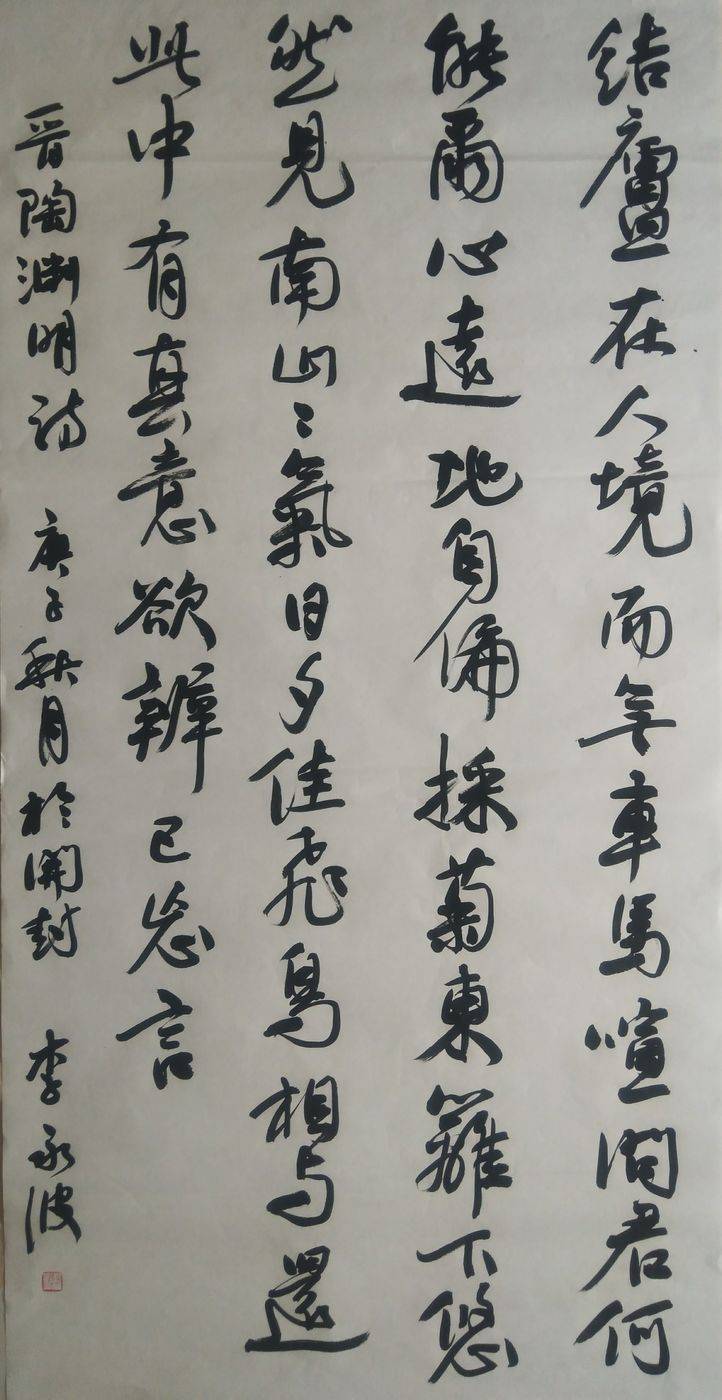 結廬在人境而无車馬喧問君何
能爾心遠地自偏採菊東籬下悠
然見南山〻氣日夕佳飛鳥相与還
此中有真意欲辨已忘言
晋陶渊明詩 庚子秋月於開封 李永波